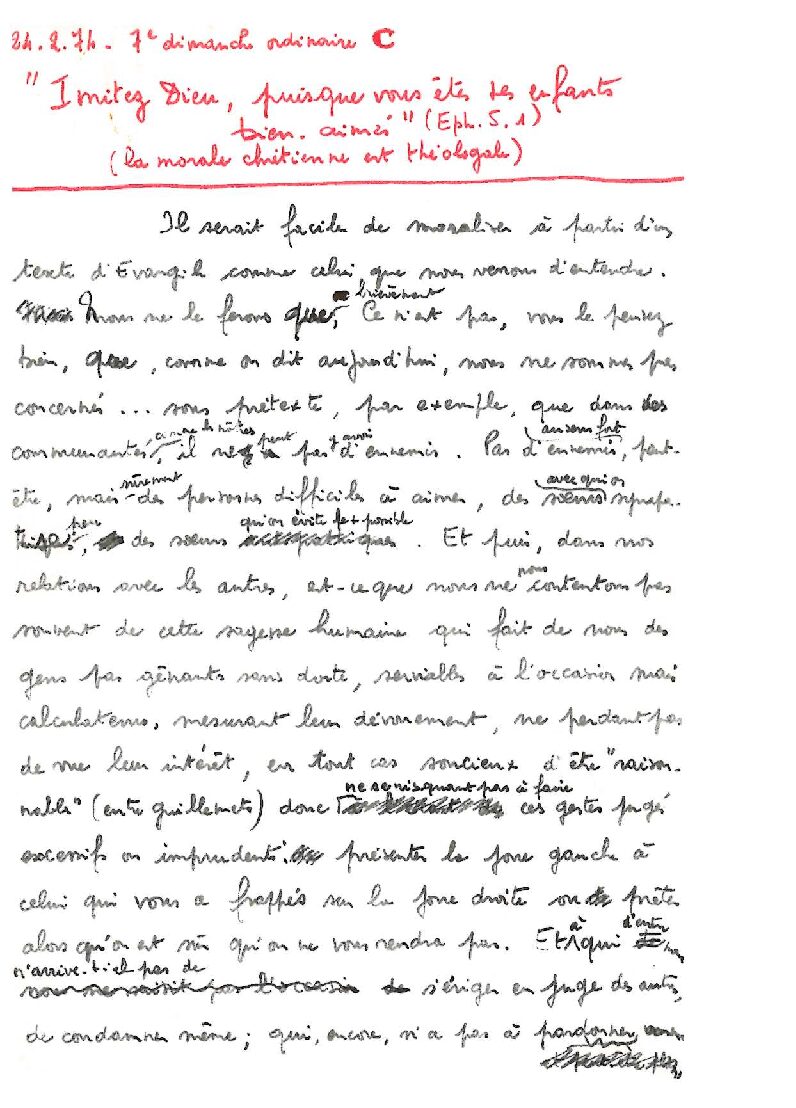 24.2.74. 7e dimanche ordinaire C
"Imitez Dieu, puisque vous êtes des enfants
bien-aimés" (Eph. 5. 1)
(la morale chrétienne est théologale)
Il serait facile de moraliser à partir d'un
texte d'Evangile comme celui que nous venons d'entendre.
brièvement
Nous ne le ferons que, Ce n'est pas, vous le pensez
bien, que, comme on dit aujourd'hui, nous ne sommes pas
concernés ... sous prétexte, par exemple, que dans des
au sens fort
communautés, comme les nôtres, il ne peut pas y avoir d'ennemis. Pas d'ennemis, peut-
sûrement avec qui on
être, mais des personnes difficiles à aimer, des soeurs sympa-
peu qu'on évite le + possible
thise, des soeurs. Et puis, dans nos
relations avec les autres, est-ce que nous ne nous contentons pas
souvent de cette sagesse humaine qui fait de nous des
gens pas gênants sans doute, serviables à l'occasion mais
calculateurs, mesurant leur dévouement, ne perdant pas
de vue leur intérêt, en tout cas soucieux d'être "raison-
ne se risquant pas à faire
nable" (entre guillemets) donc ces gestes jugés
excessifs ou imprudents: présenter la joue gauche à
celui qui vous a frappés sur la joue droite ou prêter
alors qu'on est sûr qu'on ne vous rendra pas. Et à qui d'entre nous
n'arrive-t-il pas de
s'ériger en juge des autres,
de condamner même; qui, encore, n'a pas à pardonner